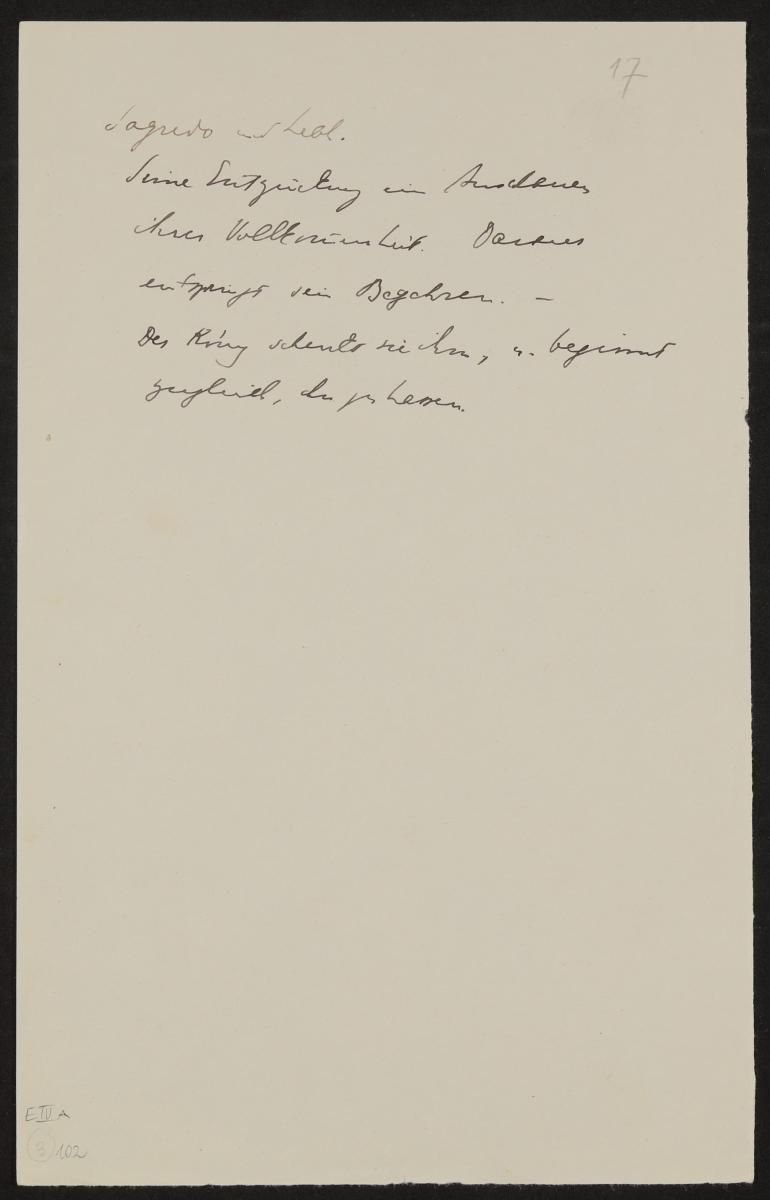 17
Sagredo und
Seine Entzückung im Anschauen
ihrer Vollkommenheit. Daraus
entspringt sein Begehren. –
Der König schenkt sie ihm, u. beginnt
zugleich, ihn zu hassen.
E IV A
3 102